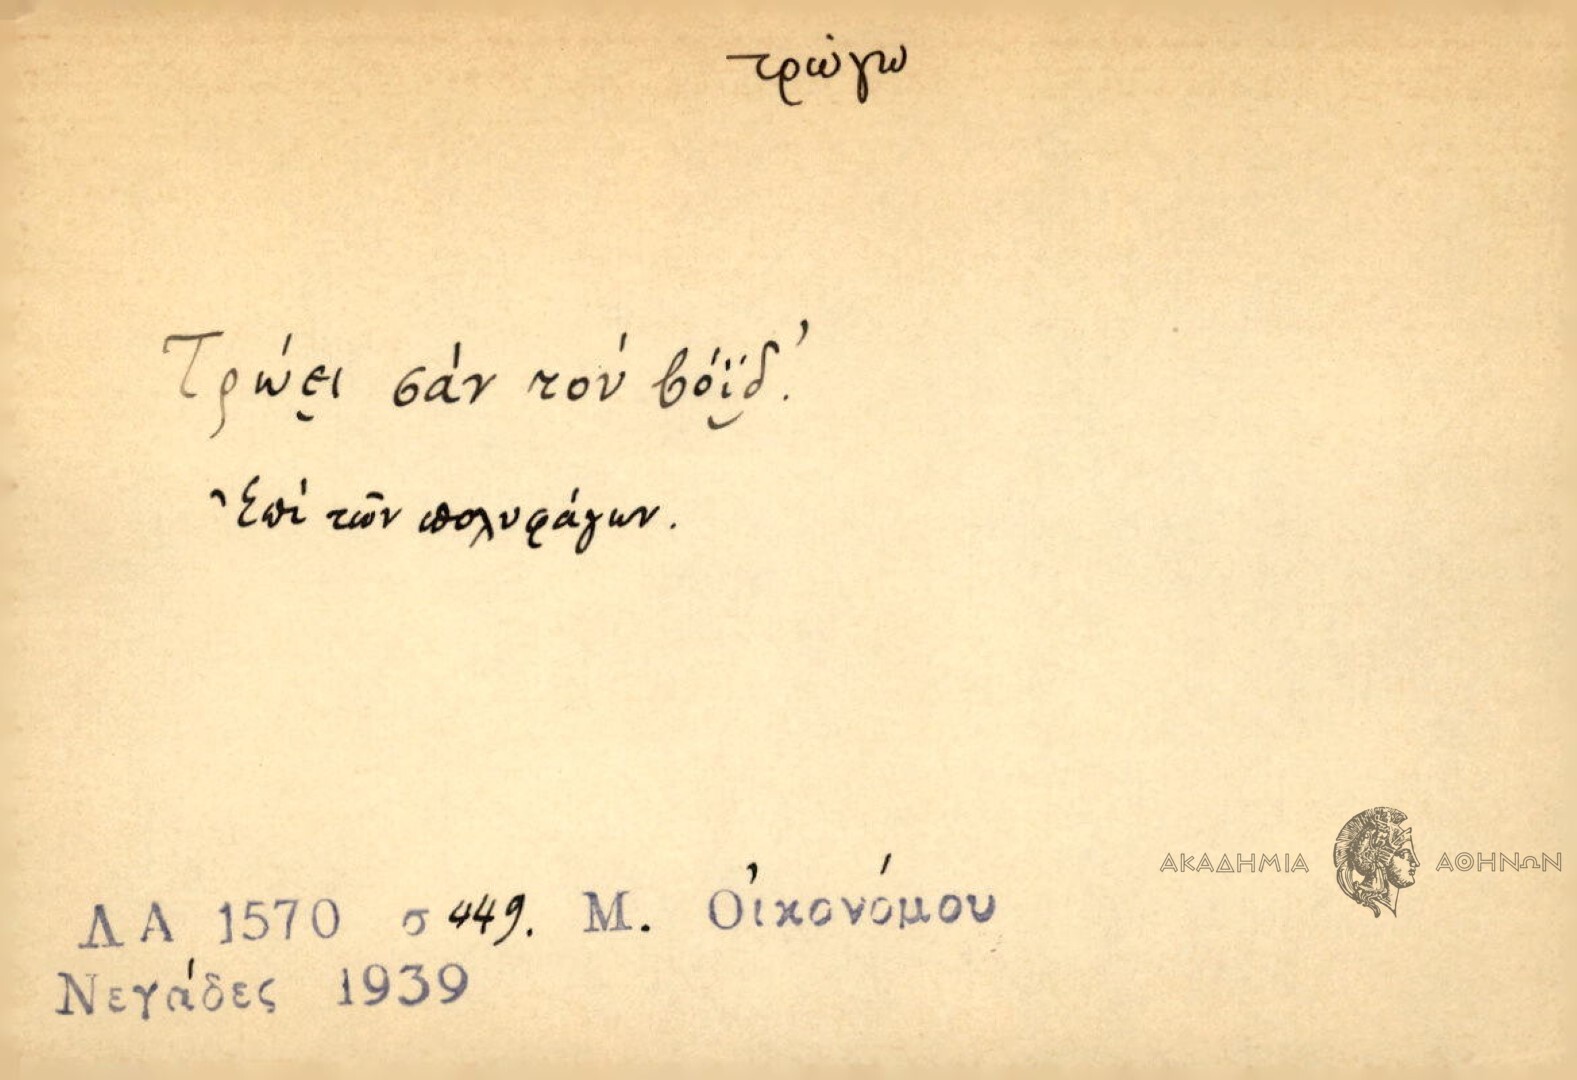 τρώγω
Τρώει σάν τού βόϊδ'.
Ἐπί τῶν πολυφάγων.
ΛΑ 1570 σ 449. Μ. Οἰκονόμου
Νεγάδες 1939
ΑΚΑΔΗΜΙΑ ΑΘΗΝΩΝ